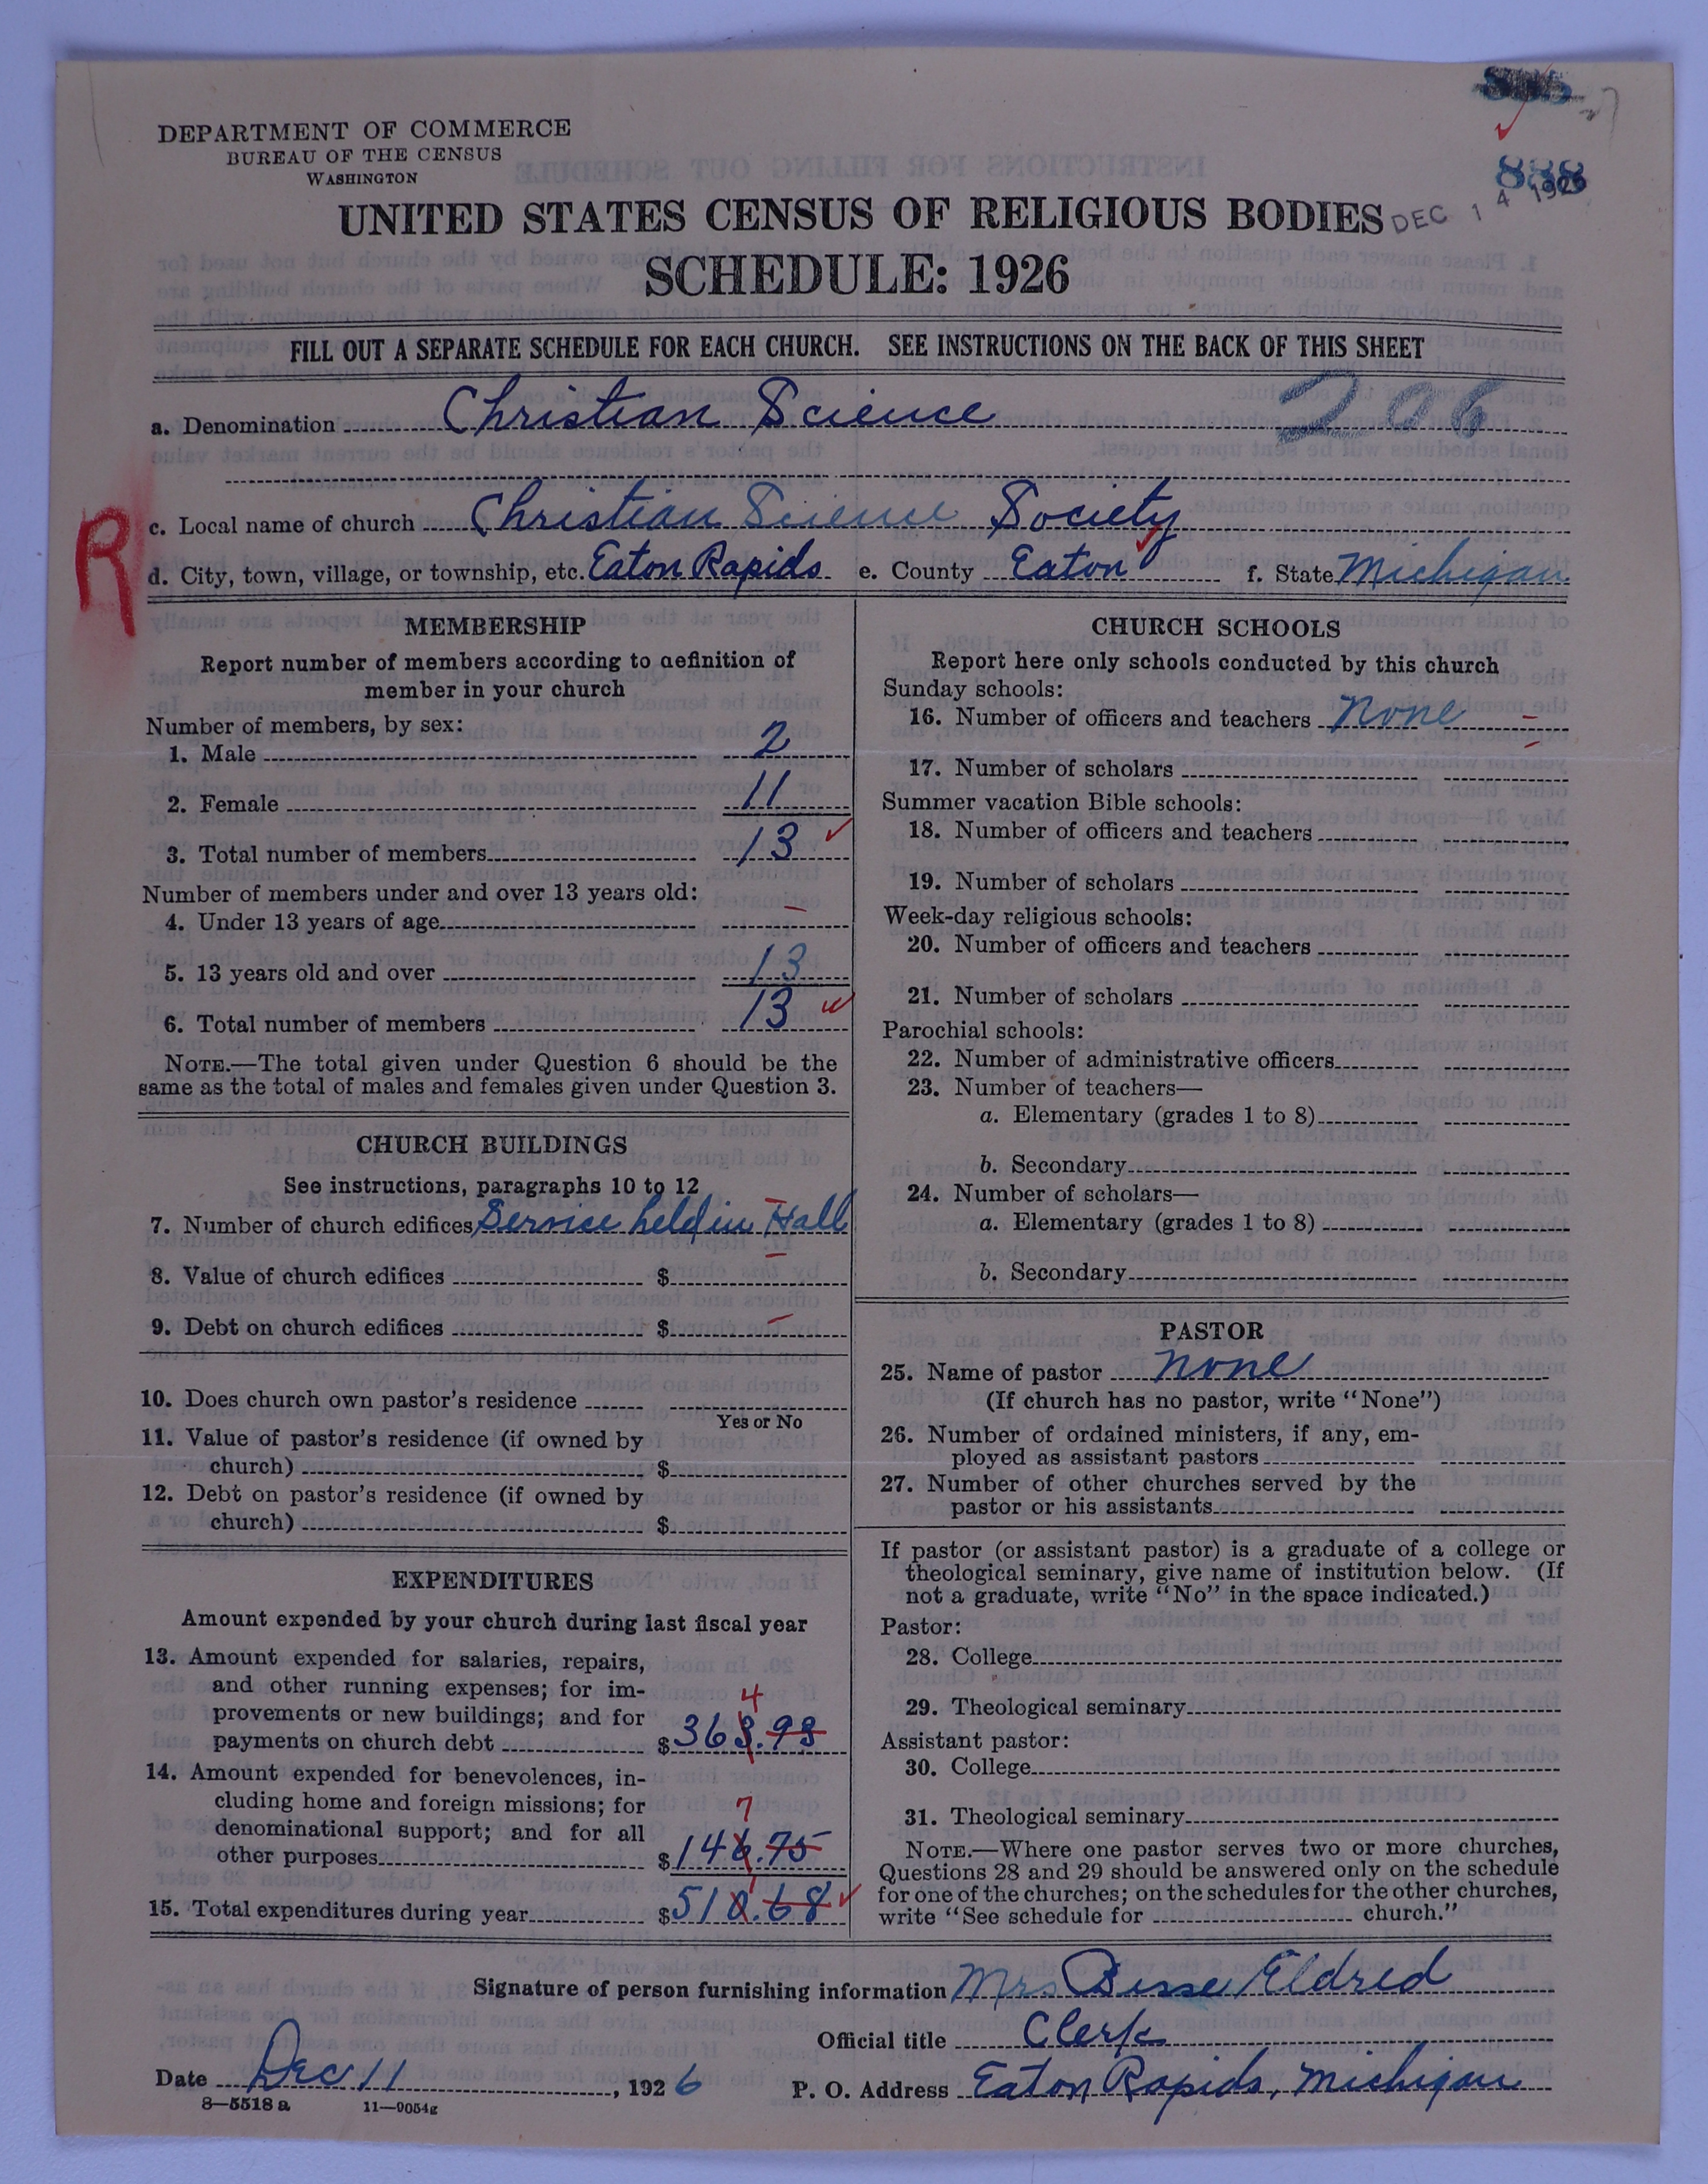 DEPARTMENT OF COMMERCE
BUREAU OF THE CENSUS
WASHINGTON
888
DEC 14 1926
UNITED STATES CENSUS OF RELIGIOUS BODIES
SCHEDULE: 1926
FILL OUT A SEPARATE SCHEDULE FOR EACH CHURCH. SEE INSTRUCTIONS ON THE BACK OF THIS SHEET
a. Denomination Christian Science 206
R
c. Local name of church Christian Science Society
d. City, town, village, or township, etc. Eaton Rapids e. County Eaton f. State Michigan
MEMBERSHIP
Report number of members according to definition of
member in your church
Number of members, by sex:
1. Male 2
2. Female 11
3. Total number of members 13
Number of members under and over 13 years old:
4. Under 13 years of age –
5. 13 years old and over 13
6. Total number of members 13
NOTE.—The total given under Question 6 should be the
same as the total of males and females given under Question 3.
CHURCH BUILDINGS
See instructions, paragraphs 10 to 12
7. Number of church edifices Service held in Hall
8. Value of church edifices $ –
9. Debt on church edifices $ –
10. Does church own pastor's residence
Yes or No
11. Value of pastor's residence (if owned by
church) $
12. Debt on pastor's residence (if owned by
church) $
EXPENDITURES
Amount expended by your church during last fiscal year
13. Amount expended for salaries, repairs,
and other running expenses; for im-
provements or new buildings; and for
payments on church debt $ 363.93
4
14. Amount expended for benevolences, in-
cluding home and foreign missions; for
denominational support; and for all
other purposes $ 146.75
7
15. Total expenditures during year $ 510.68
1
CHURCH SCHOOLS
Report here only schools conducted by this church
Sunday schools:
16. Number of officers and teachers None –
17. Number of scholars –
Summer vacation Bible schools:
18. Number of officers and teachers
19. Number of scholars
Week-day religious schools:
20. Number of officers and teachers
21. Number of scholars
Parochial schools:
22. Number of administrative officers
23. Number of teachers—
a. Elementary (grades 1 to 8)
b. Secondary
24. Number of scholars—
a. Elementary (grades 1 to 8)
b. Secondary
PASTOR
25. Name of pastor None
(If church has no pastor, write "None")
26. Number of ordained ministers, if any, em-
ployed as assistant pastors
27. Number of other churches served by the
pastor or his assistants
If pastor (or assistant pastor) is a graduate of a college or
theological seminary, give name of institution below. (If
not a graduate, write "No" in the space indicated.)
Pastor:
28. College
29. Theological seminary
Assistant pastor:
30. College
31. Theological seminary
NOTE.—Where one pastor serves two or more churches,
Questions 28 and 29 should be answered only on the schedule
for one of the churches; on the schedules for the other churches,
write "See schedule for church."
Signature of person furnishing information Mrs Bisse Eldred
Official title Clerk
Date Dec 11, 1926 P. O. Address Eaton Rapids, Michigan
8—5518 a 11—9054g